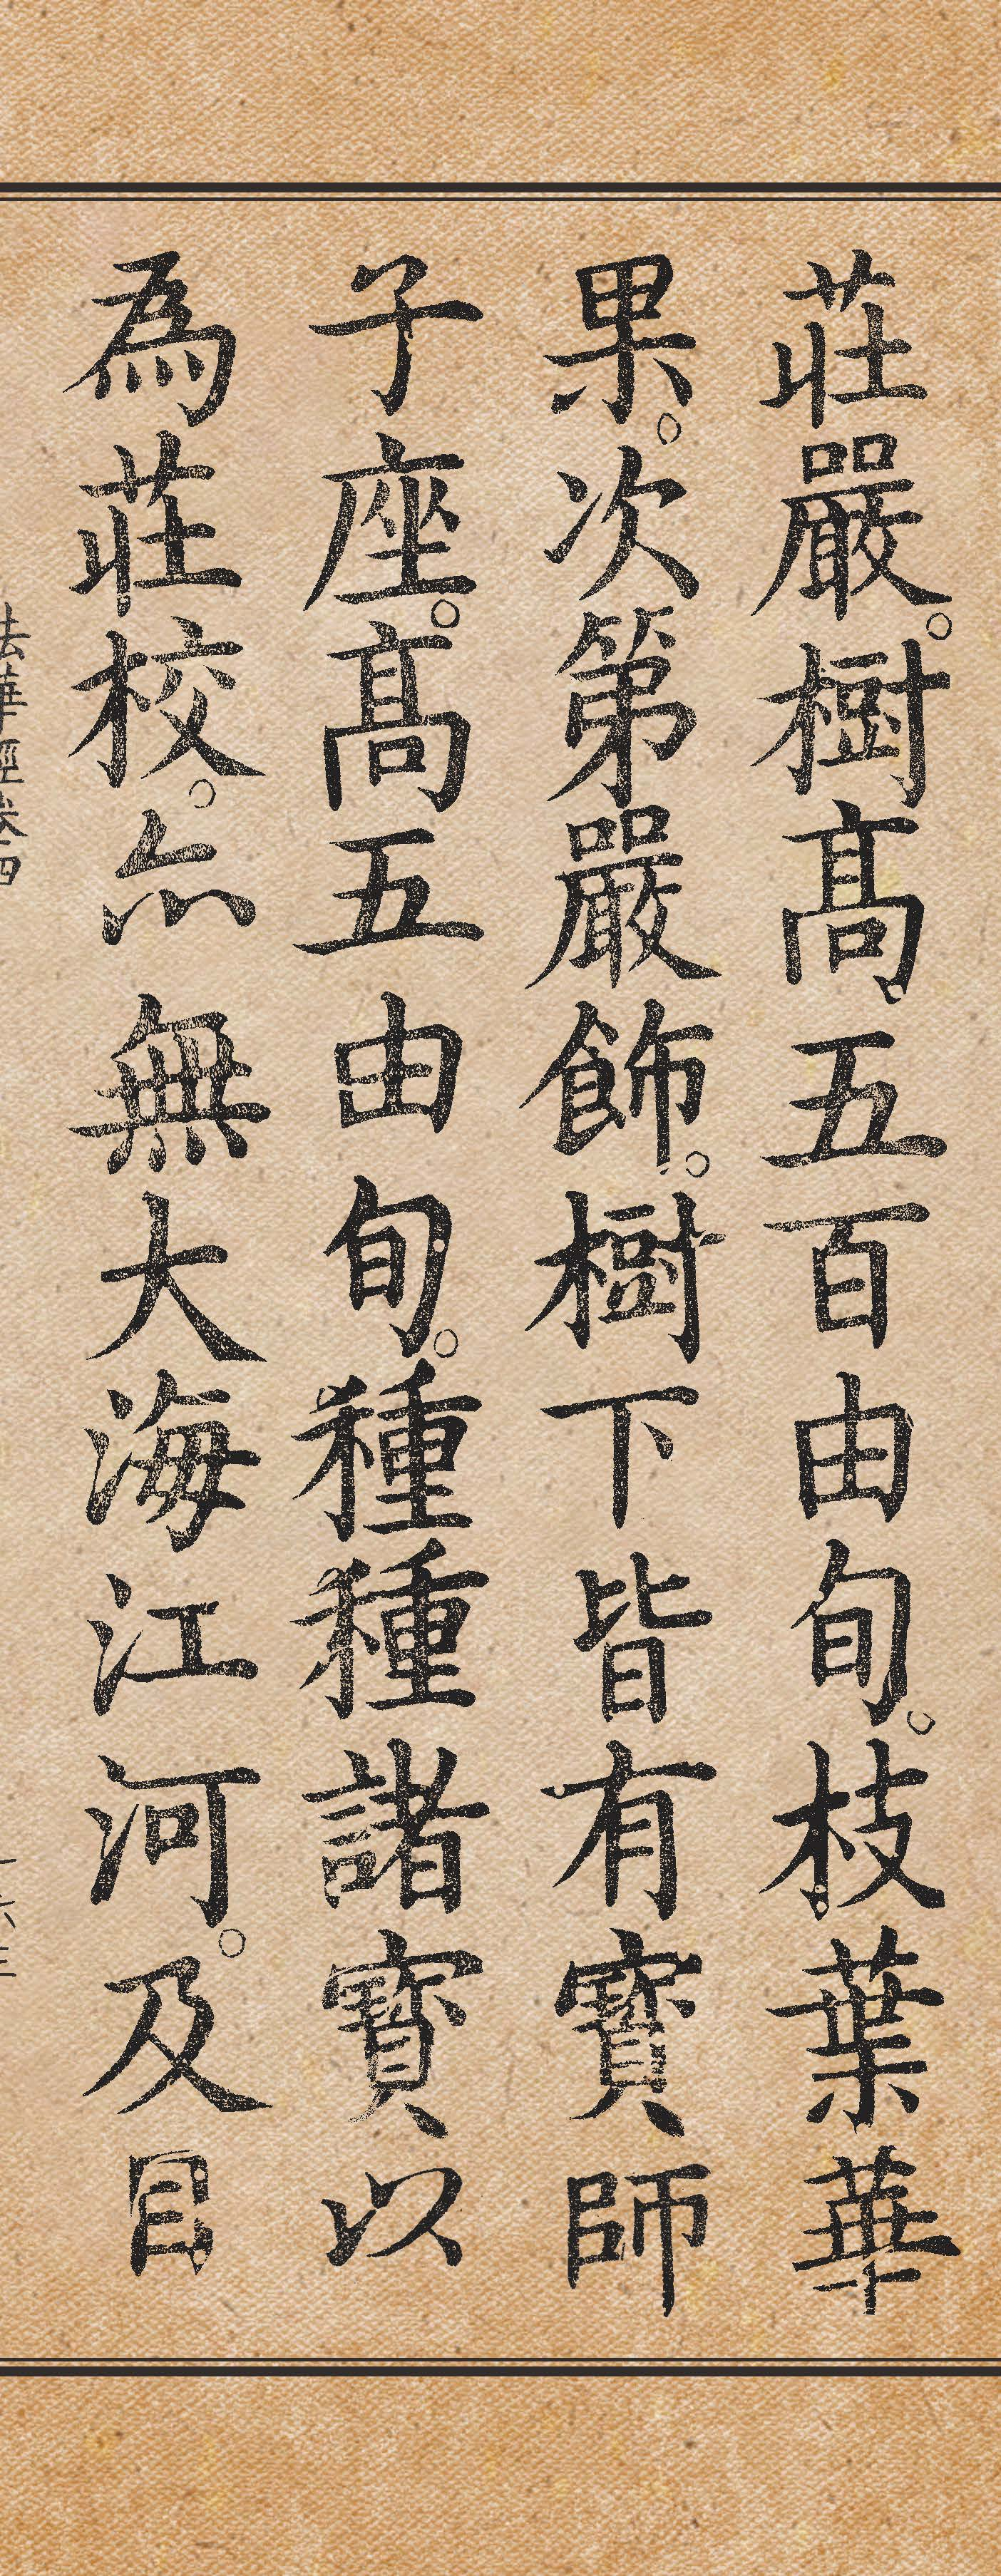 莊嚴。樹髙五百由旬。枝葉華
果。次第嚴飾。樹下皆有寶師
子座。髙五由旬。種種諸寶以
為莊校。亦無大海江河。及目
法華經卷四